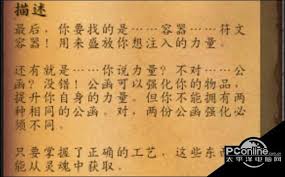 描述
最后，你要找的是……容器……符文
容器！用来盛放你想注入的力量。
还有就是……你说力量？不对……公
函？没错！公函可以强化你的物品，
提升你自身的力量。但你不能拥有两
种相同的公函。对，两份公函强化必
须不同。
只要掌握了正确的工艺，这些东西
能从灵魂中获取。
PConline
太平洋电脑网